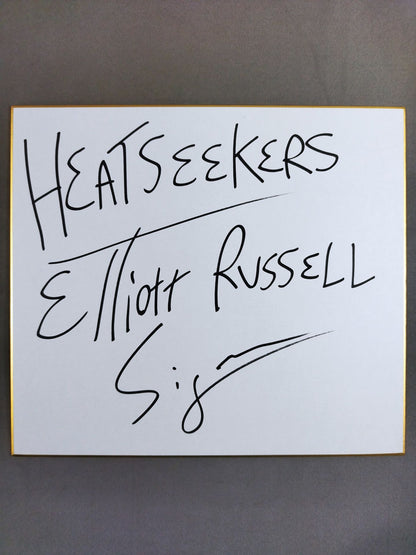 HEATSEEKERS
Elliott RUSSELL
Sign